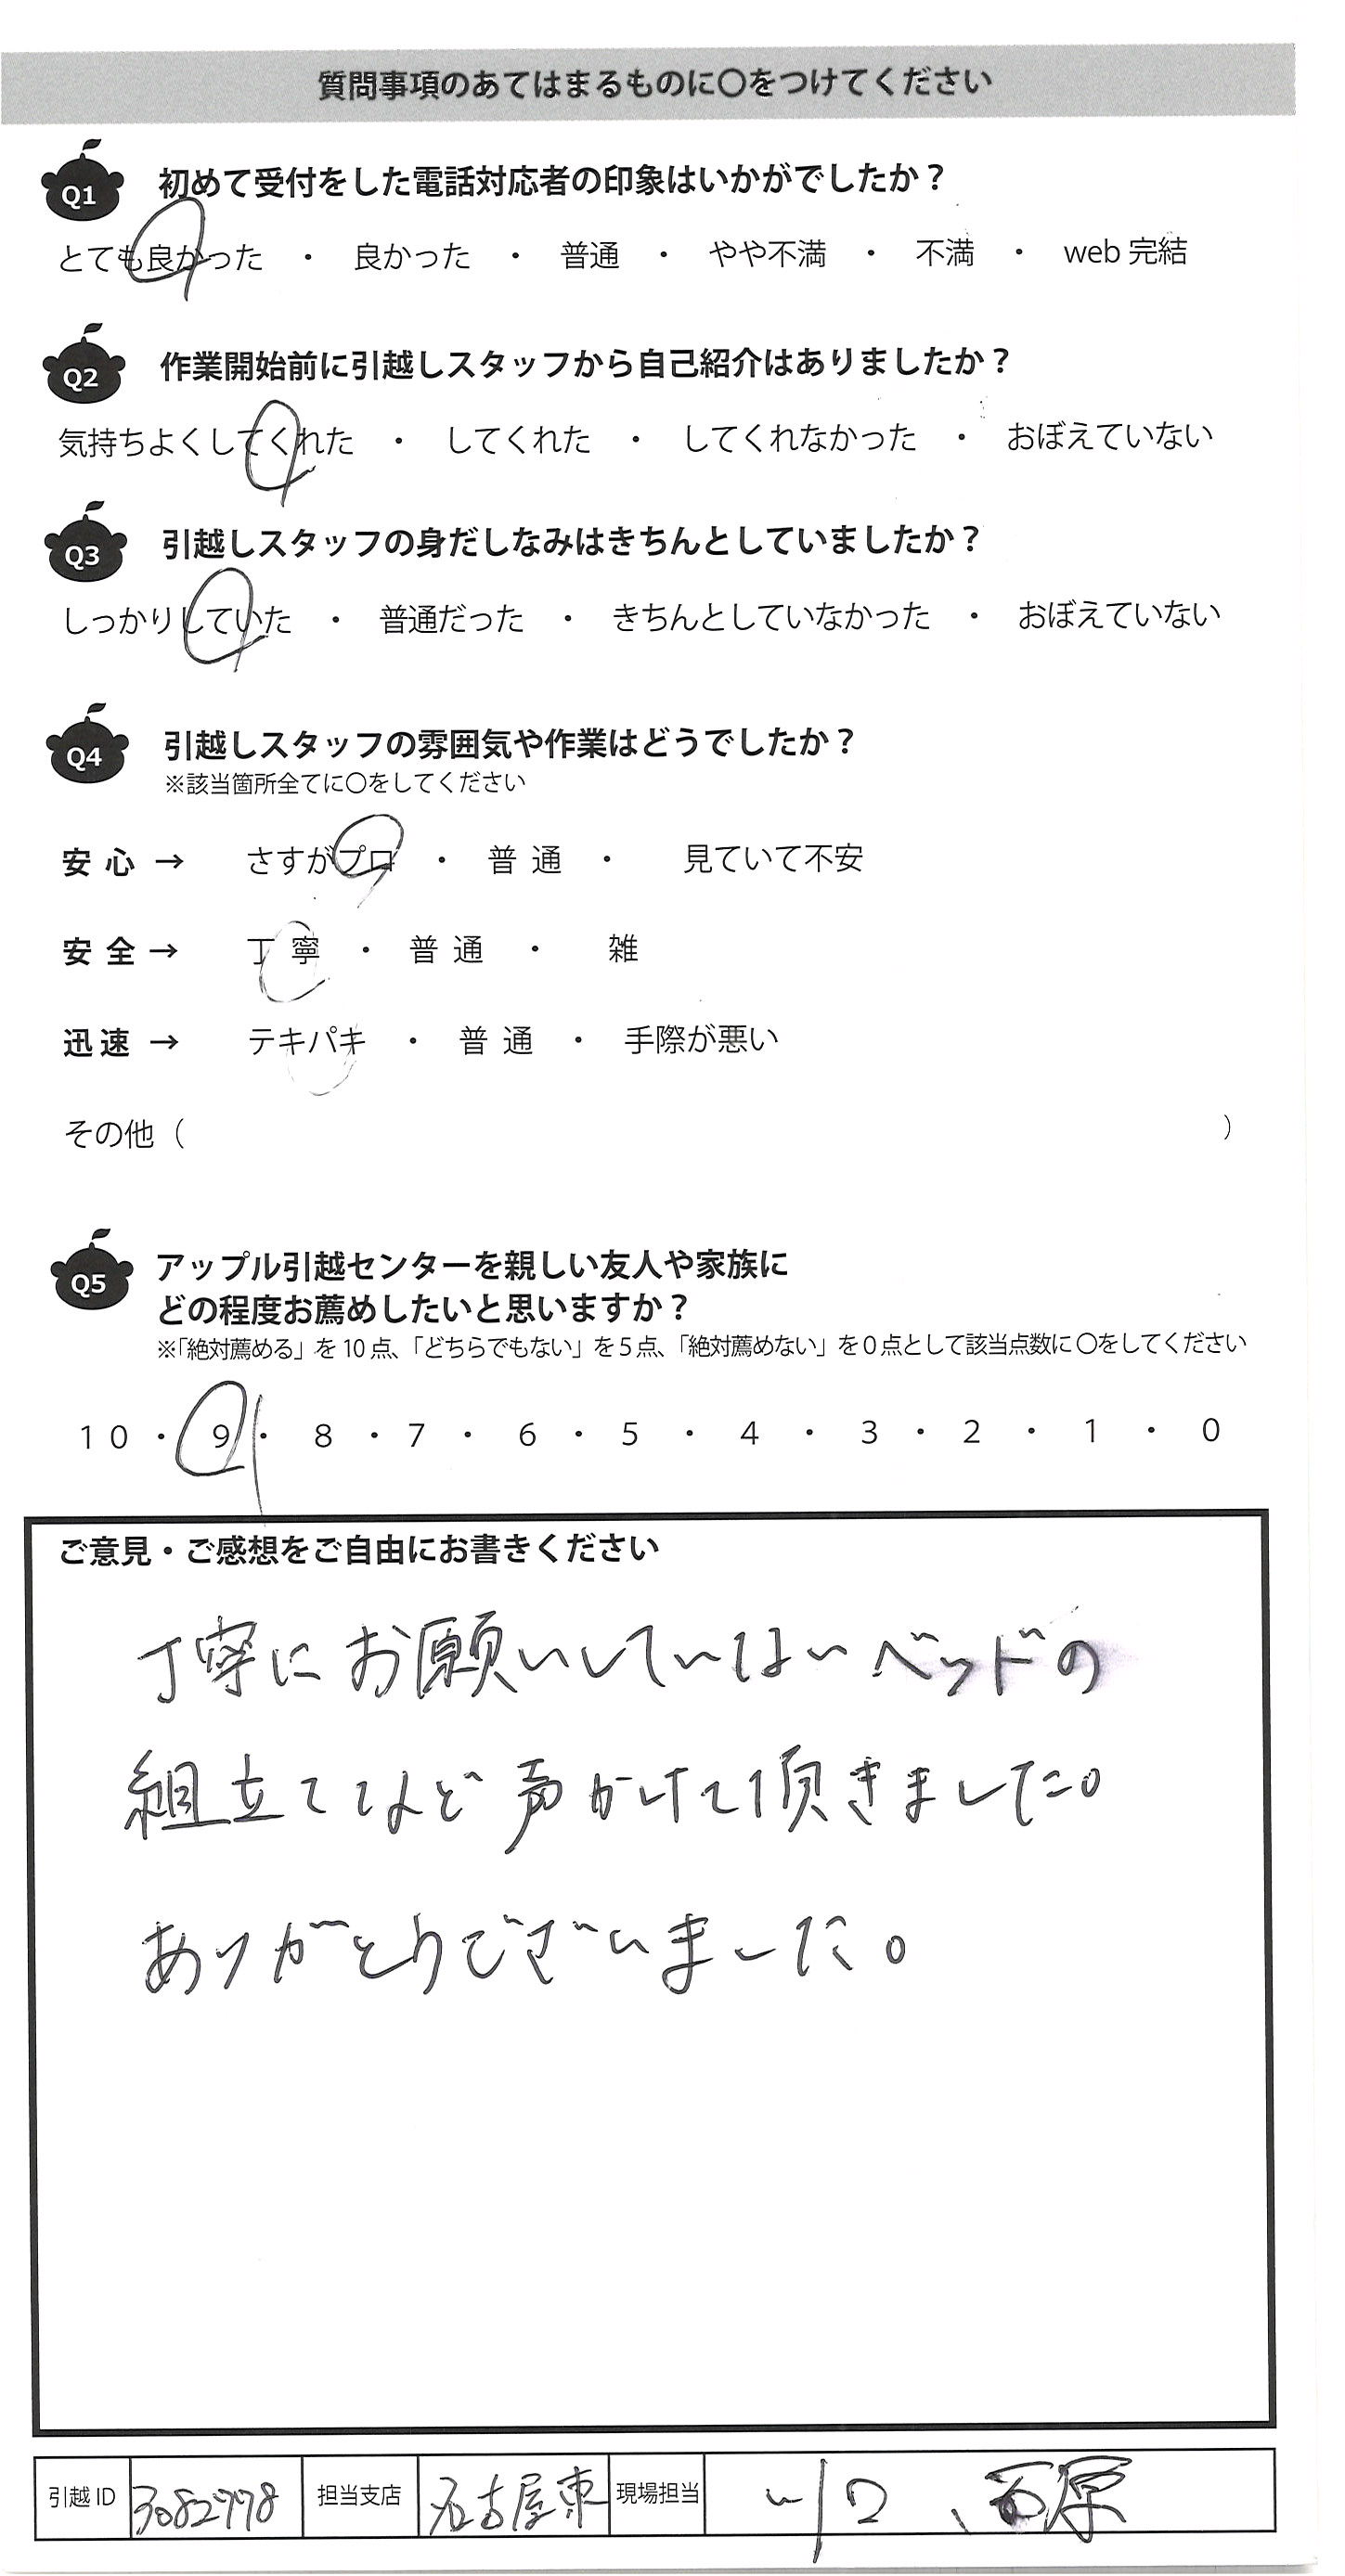 質問事項のあてはまるものに〇をつけてください
Q1 初めて受付をした電話対応者の印象はいかがでしたか？
とても良かった ・ 良かった ・ 普通 ・ やや不満 ・ 不満 ・ web 完結
Q2 作業開始前に引越しスタッフから自己紹介はありましたか？
気持ちよくしてくれた ・ してくれた ・ してくれなかった ・ おぼえていない
Q3 引越しスタッフの身だしなみはきちんとしていましたか？
しっかりしていた ・ 普通だった ・ きちんとしていなかった ・ おぼえていない
Q4 引越しスタッフの雰囲気や作業はどうでしたか？
※該当箇所全てに〇をしてください
安心 → さすがプロ ・ 普通 ・ 見ていて不安
安全 → 丁寧 ・ 普通 ・ 雑
迅速 → テキパキ ・ 普通 ・ 手際が悪い
その他（ ）
Q5 アップル引越センターを親しい友人や家族に
どの程度お薦めしたいと思いますか？
※「絶対薦める」を 10 点、「どちらでもない」を 5 点、「絶対薦めない」を 0 点として該当点数に 〇をしてください
10 ・ 9 ・ 8 ・ 7 ・ 6 ・ 5 ・ 4 ・ 3 ・ 2 ・ 1 ・ 0
ご意見・ご感想をご自由にお書きください
丁寧にお願いしていないベッドの
組立てなど声かけて頂きました。
ありがとうございました。
引越 ID 3082778 担当支店 名古屋東 現場担当 川口、西原